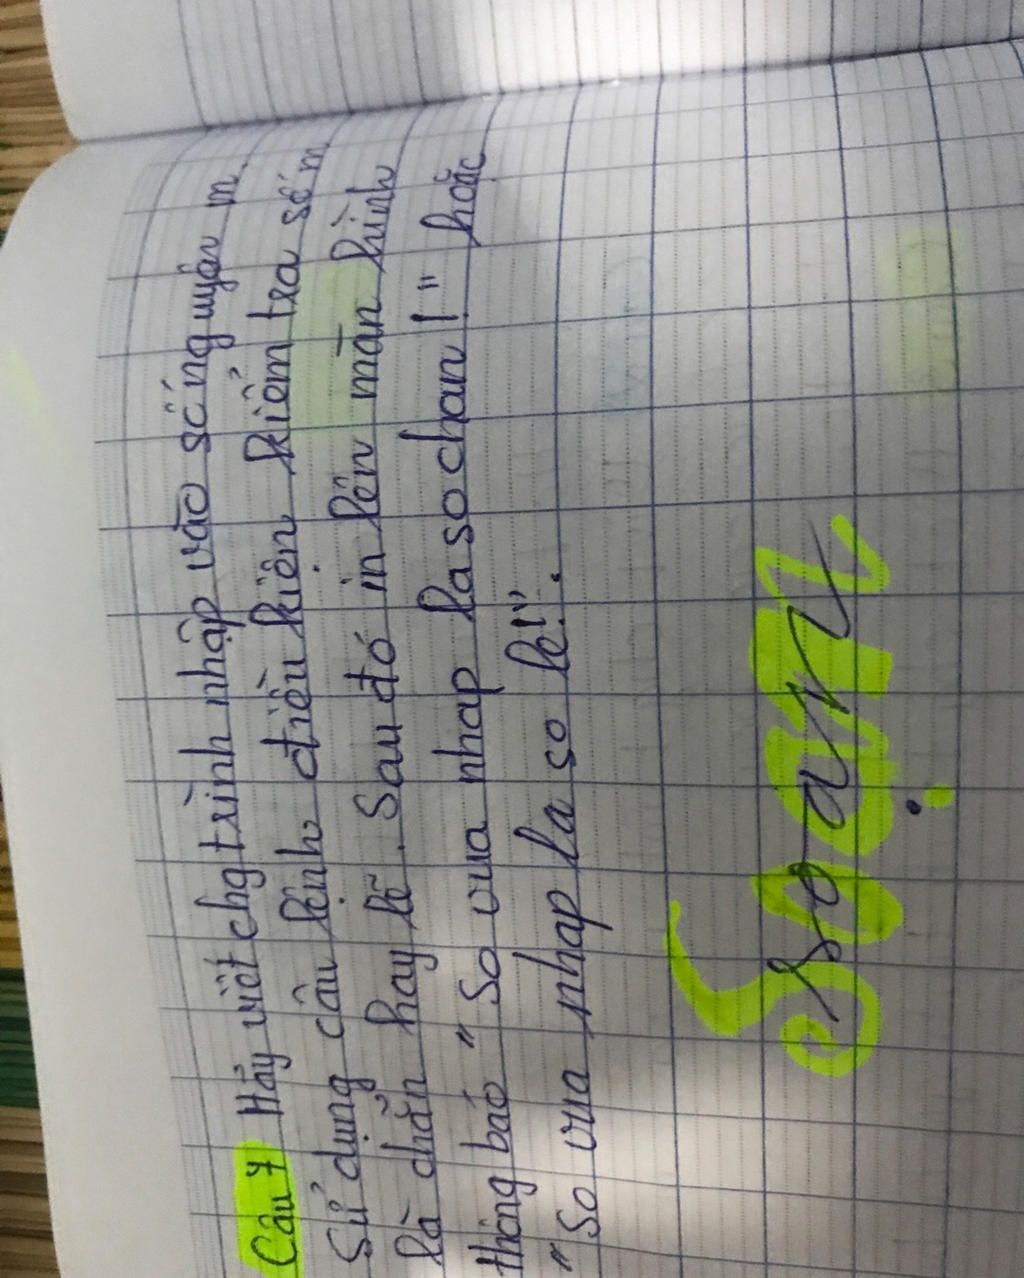 Câu 7 Hãy viết chg trình nhập vào số nguyên m.
Sử dụng câu lệnh điều kiện kiểm tra số m
là chẵn hay lẽ. Sau đó in lên màn hình
thông báo "So vua nhap la so chan!" hoặc
"So vua nhap la so le!".
Soạn